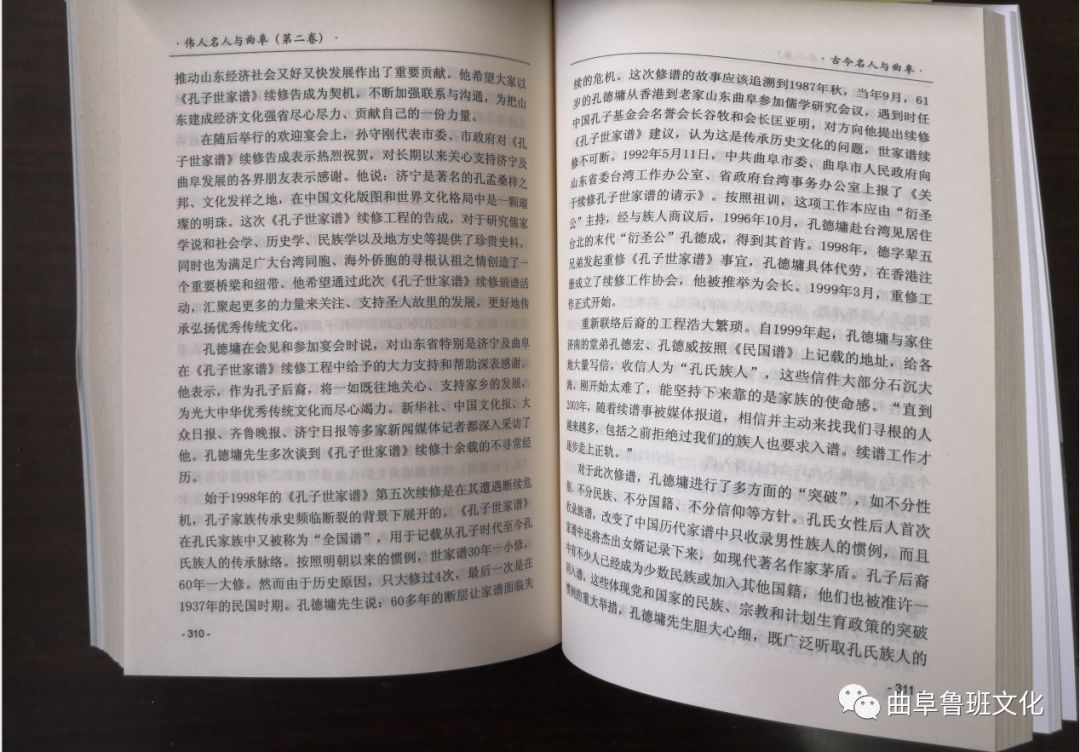 ·伟人名人与曲阜（第二卷）·
推动山东经济社会又好又快发展作出了重要贡献。他希望大家以
《孔子世家谱》续修告成为契机，不断加强联系与沟通，为把山
东建成经济文化强省尽心尽力、贡献自己的一份力量。
在随后举行的欢迎宴会上，孙守刚代表市委、市政府对《孔
子世家谱》续修告成表示热烈祝贺，对长期以来关心支持济宁及
曲阜发展的各界朋友表示感谢。他说：济宁是著名的孔孟桑梓之
邦、文化发祥之地，在中国文化版图和世界文化格局中是一颗璀
璨的明珠。这次《孔子世家谱》续修工程的告成，对于研究儒家
学说和社会学、历史学、民族学以及地方史等提供了珍贵史料，
同时也为满足广大台湾同胞、海外侨胞的寻根认祖之情创造了一
个重要桥梁和纽带。他希望通过此次《孔子世家谱》续修颁谱活
动，汇聚起更多的力量来关注、支持圣人故里的发展，更好地传
承弘扬优秀传统文化。
孔德墉在会见和参加宴会时说，对山东省特别是济宁及曲阜
在《孔子世家谱》续修工程中给予的大力支持和帮助深表感谢。
他表示，作为孔子后裔，将一如既往地关心、支持家乡的发展，
为光大中华优秀传统文化而尽心竭力。新华社、中国文化报、大
众日报、齐鲁晚报、济宁日报等多家新闻媒体记者都深入采访了
他。孔德墉先生多次谈到《孔子世家谱》续修十余载的不寻常经
历。
始于1998年的《孔子世家谱》第五次续修是在其遭遇断续危
机，孔子家族传承史频临断裂的背景下展开的。《孔子世家谱》
在孔氏家族中又被称为“全国谱”，用于记载从孔子时代至今孔
氏族人的传承脉络。按照明朝以来的惯例，世家谱30年一小修，
60年一大修。然而由于历史原因，只大修过4次，最后一次是在
1937年的民国时期。孔德墉先生说：60多年的断层让家谱面临失
-310-
·古今名人与曲阜·
续的危机。这次修谱的故事应该追溯到1987年秋，当年9月，61
岁的孔德墉从香港到老家山东曲阜参加儒学研究会议，遇到时任
中国孔子基金会名誉会长谷牧和会长匡亚明，对方向他提出续修
《孔子世家谱》建议，认为这是传承历史文化的问题，世家谱续
修不可断。1992年5月11日，中共曲阜市委、曲阜市人民政府向
山东省委台湾工作办公室、省政府台湾事务办公室上报了《关
于续修孔子世家谱的请示》。按照祖训，这项工作本应由“衍圣
公”主持，经与族人商议后，1996年10月，孔德墉赴台湾见居住
台北的末代“衍圣公”孔德成，得到其首肯。1998年，德字辈五
兄弟发起重修《孔子世家谱》事宜，孔德墉具体代劳，在香港注
册成立了续修工作协会，他被推举为会长。1999年3月，重修工
作正式开始。
重新联络后裔的工程浩大繁琐。自1999年起，孔德墉与家住
济南的堂弟孔德宏、孔德威按照《民国谱》上记载的地址，给各
地大量写信，收信人为“孔氏族人”，这些信件大部分石沉大
海，刚开始太难了，能坚持下来靠的是家族的使命感。“直到
2003年，随着续谱事被媒体报道，相信并主动来找我们寻根的人
越来越多，包括之前拒绝过我们的族人也要求入谱。续谱工作才
逐步走上正轨。”
对于此次修谱，孔德墉进行了多方面的“突破”，如不分性
别、不分民族、不分国籍、不分信仰等方针。孔氏女性后人首次
收录族谱，改变了中国历代家谱中只收录男性族人的惯例，而且
家谱中还将杰出女婿记录下来，如现代著名作家茅盾。孔子后裔
中有不少人已经成为少数民族或加入其他国籍，他们也被准许一
同入谱，这些体现党和国家的民族、宗教和计划生育政策的突破
惯例的重大举措，孔德墉先生胆大心细，既广泛听取孔氏族人的
-311-
曲阜鲁班文化